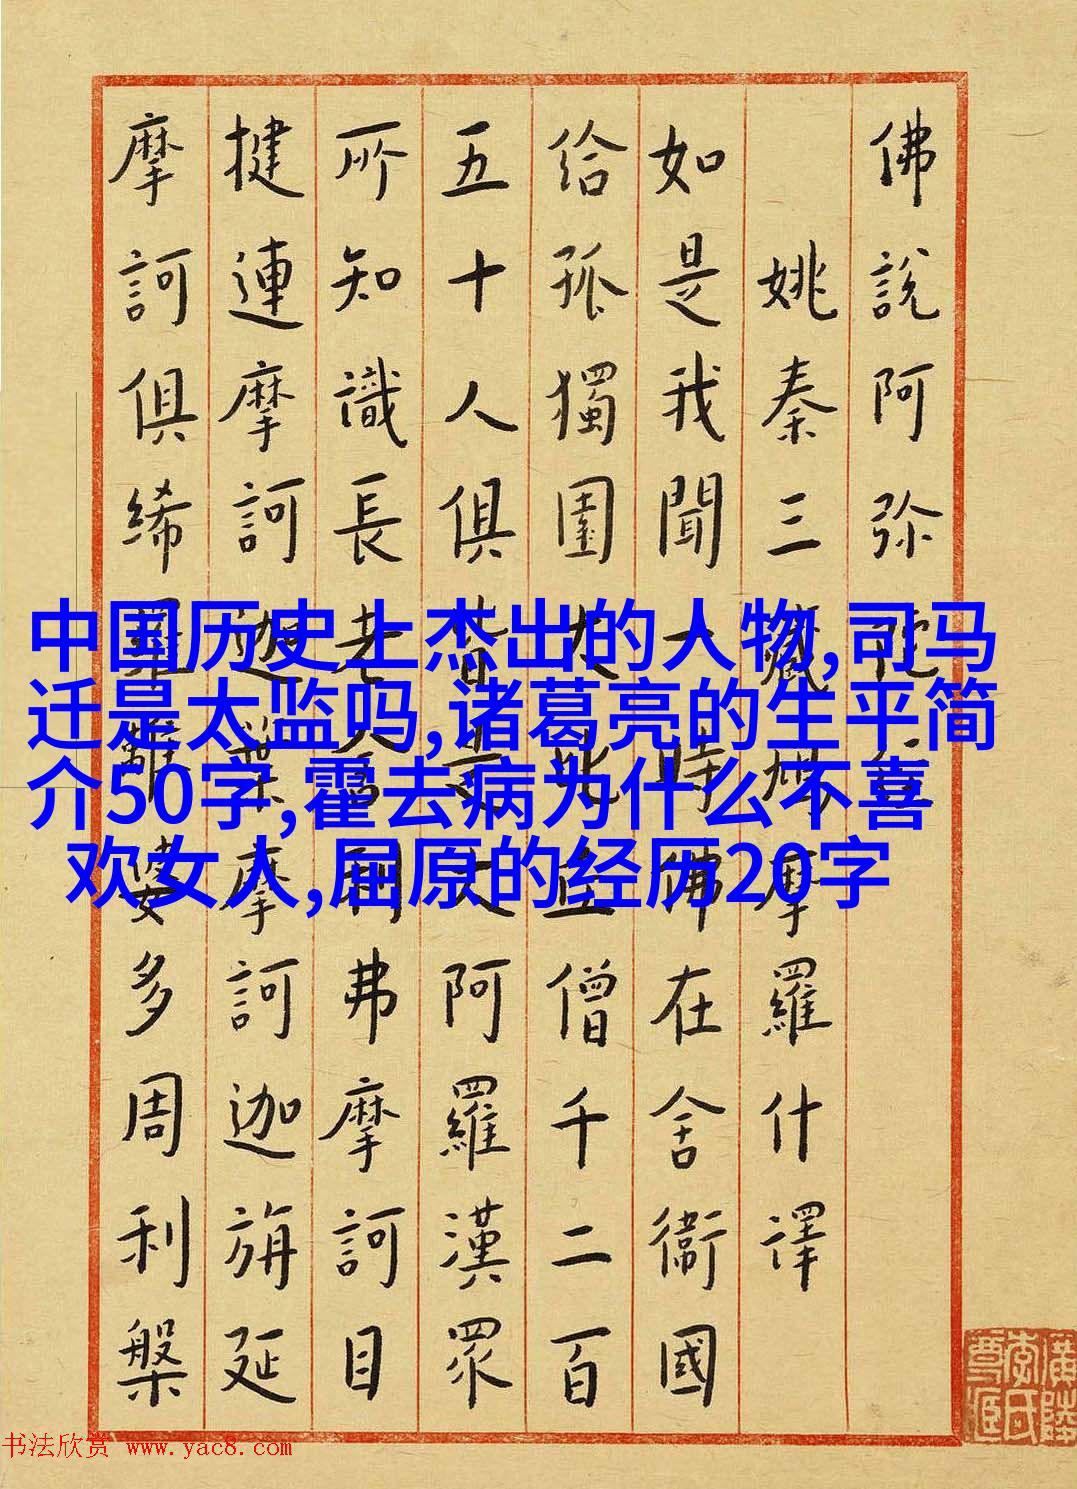 佛說阿弥陀
姚秦三藏鸠摩羅什譯
如是我聞一時佛在舍衞國
给孤獨園大比丘僧千二百
五十人俱皆是大阿羅漢眾
所知識長老舍利弗摩訶目
揵連摩訶迦葉摩訶迦旃延
摩訶俱絺羅離婆多周利槃
中国历史上杰出的人物,司马
迁是太监吗,诸葛亮的生平简
介50字,霍去病为什么不喜
欢女人,屈原的经历20字
书法欣赏 www.yac8.com